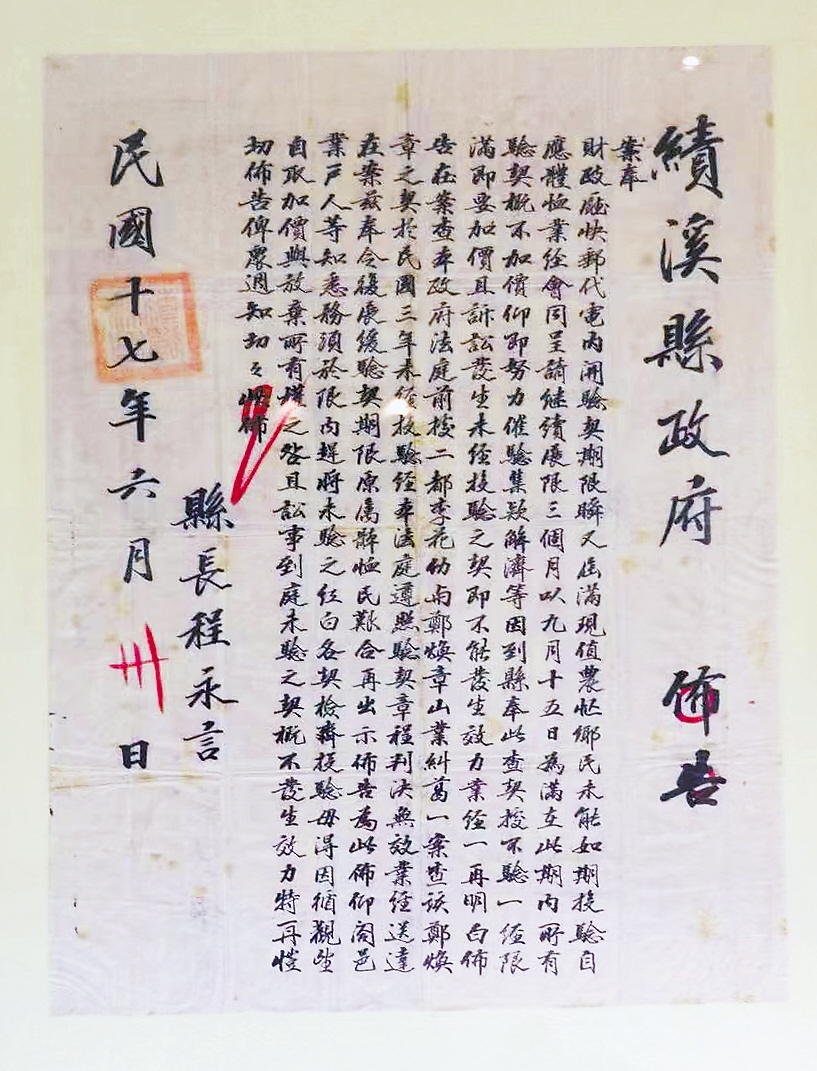 績溪縣政府 佈告
案奉
財政廳快郵代電內開驗契期限瞬又屆滿現值農忙鄉民未能如期投驗自
應體恤業經會同呈請繼續展限三個月以九月十五日為滿在此期內所有
驗契概不加價仰即努力催驗集款解濟等因到縣奉此查契投不驗一經限
滿即要加價且訴訟發生未經投驗之契即不能發生效力業經一再明白佈
告在案查奉政府法庭前投二都李花仂與鄭煥章山業糾葛一案查該鄭煥
章之契於民國三年未經投驗經奉法庭遵照驗契章程判決無效業經送達
在案茲奉令復展緩驗契期限原屬體恤民艱合再出示佈告為此佈仰闔邑
業戶人等知悉務須於限內趕將未驗之紅白各契檢齊投驗毋得因循觀望
自取加價與放棄所有權之咎且訟事到庭未驗之契概不發生效力特再愷
切佈告俾眾週知切々此佈
縣長程永言
民國十七年六月卅日